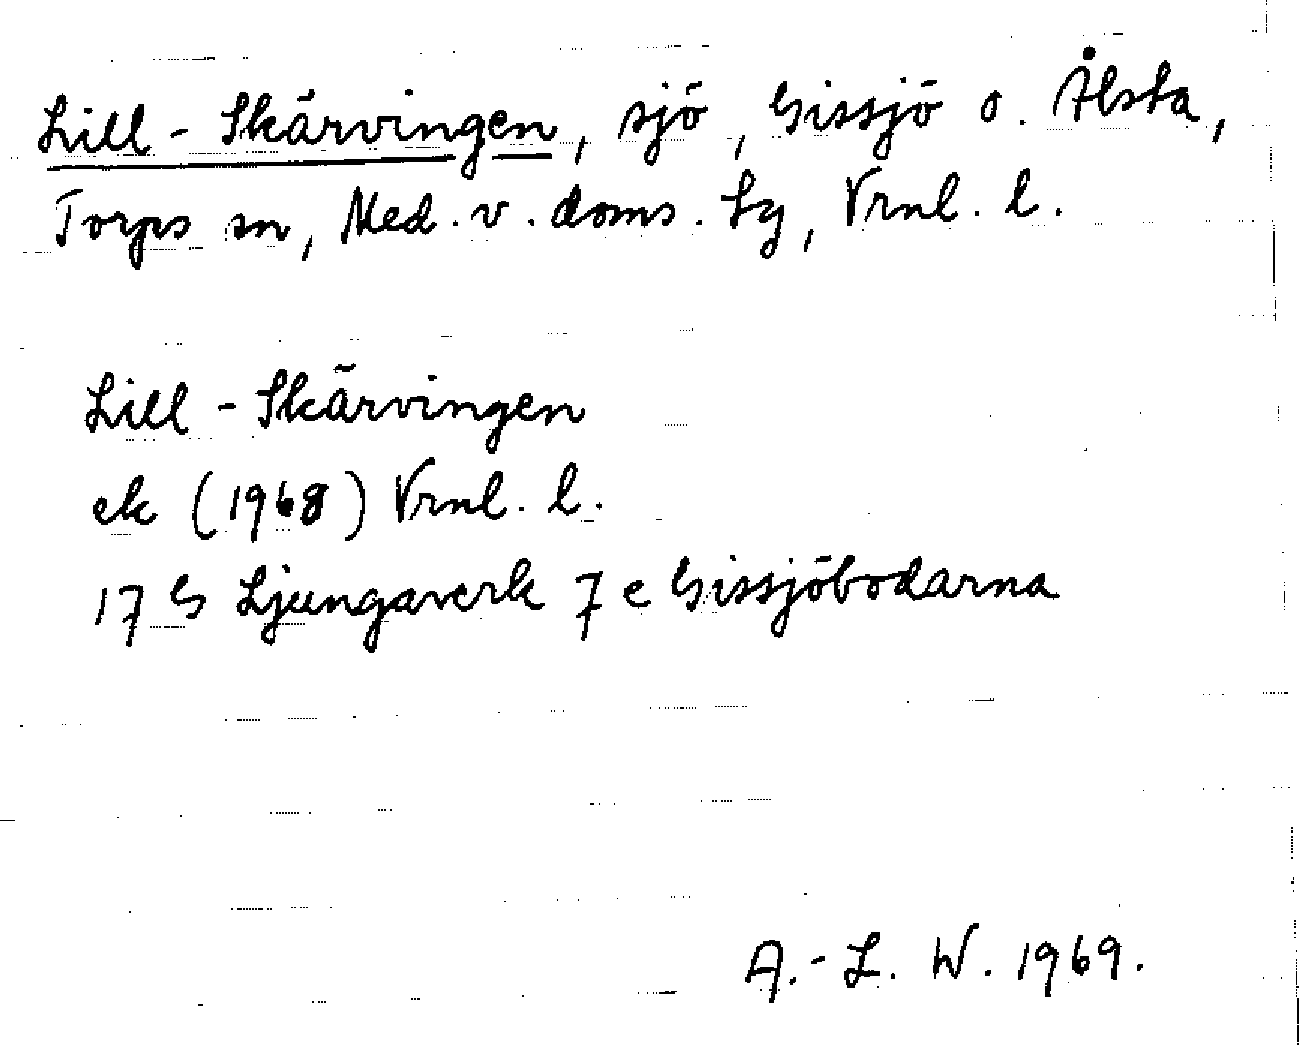 Lill-Skärvingen, sjö, Gissjö o. Ålsta,
Torps sn, Med. v. doms. tg, Vrnl. l.
Lill-Skärvingen
ek (1968) Vrnl. l.
17 G Ljungaverk 7 e Gissjöbodarna
A.-L. W. 1969.